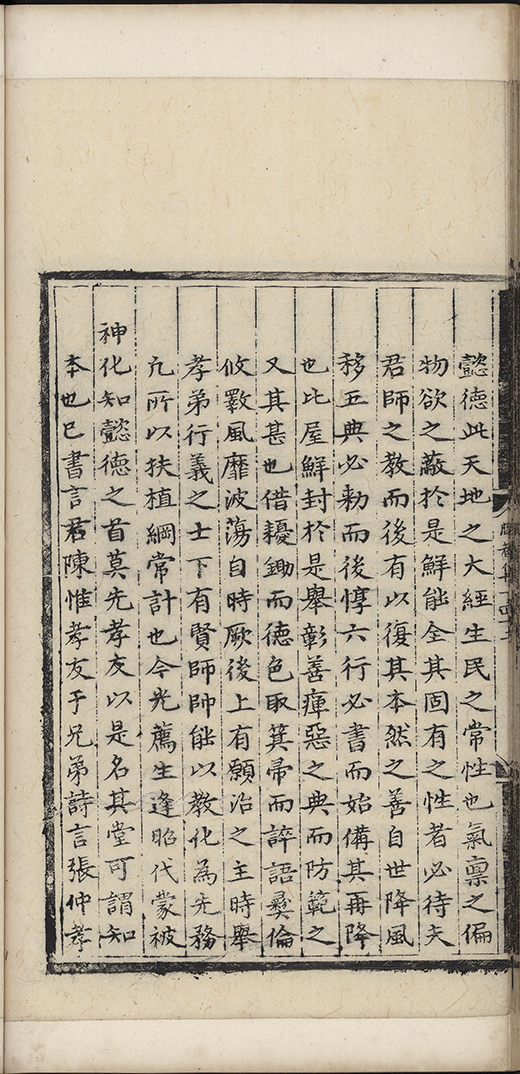 懿德此天地之大經生民之常性也氣禀之偏
物欲之蔽於是鮮能全其固有之性者必待夫
君師之教而後有以復其本然之善自世降風
移五典必勑而後惇六行必書而始備其再降
也比屋鮮封於是舉彰善癉惡之典而防範之
又其甚也借耰鋤而德色取箕帚而誶語彛倫
攸斁風靡波蕩自時厥後上有願治之主時舉
孝弟行義之士下有賢師帥能以教化為先務
凡所以扶植綱常計也今光薦生逢昭代蒙被
神化知懿德之首莫先孝友以是名其堂可謂知
本也已書言君陳惟孝友于兄弟詩言張仲孝